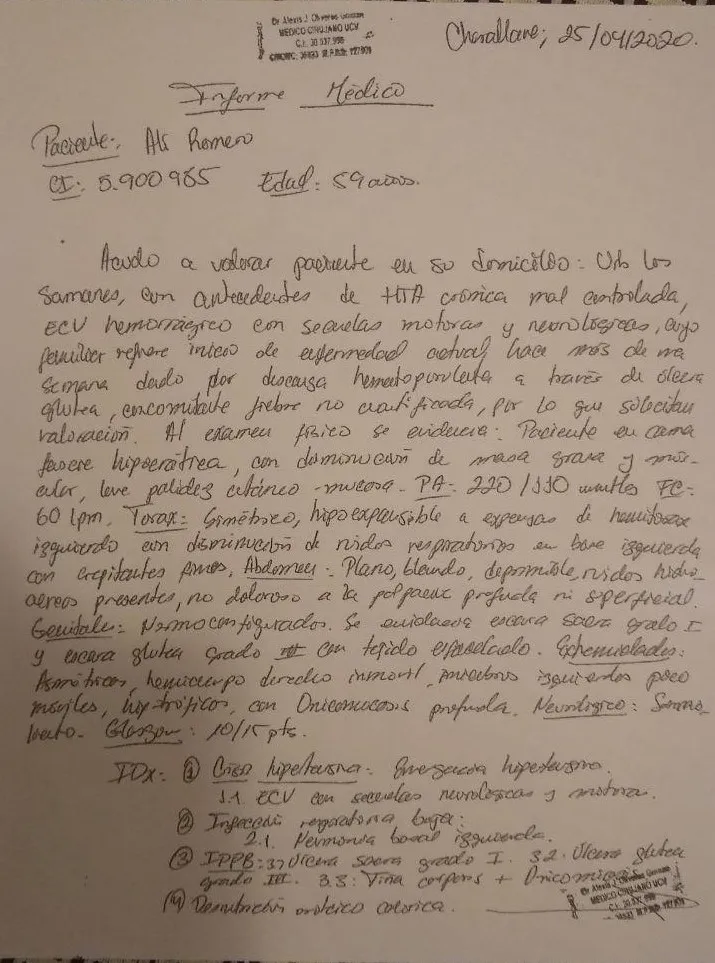 Dr Alexis J.
MEDICO CIRUJANO UCV
Charallave; 25/04/2020.
Informe Médico
Paciente: Als Romero
CI: 5.900985 Edad: 59 años.
Acudo a valorar paciente en su domicilio: Urb los
Samanes, con antecedentes de HTA crónica mal controlada,
ECV hemorrágico con secuelas motoras y neurológicas, cuyo
familiar refiere inicio de enfermedad actual hace más de una
semana dado por descarga hematopurulenta a través de úlcera
glútea, concomitante fiebre no cuantificada, por lo que solicitan
valoración. Al examen físico se evidencia: Paciente en cama
facere hipocrática, con disminución de masa grasa y mus-
cular, leve palidez cutáneo-mucosa. PA: 220/110 mmHg FC:
60 lpm. Torax: Simétrico, hipoexpansible a expensas de hemitorax
izquierdo con disminución de ruidos respiratorios en base izquierda
con crepitantes finos, Abdomen: Plano, blando, deprimible, ruidos hidro-
aereos presentes, no doloroso a la palpación profunda ni superficial.
Genitales: Normoconfigurados. Se evidencia escara sacra grado I
y escara glutea grado III con tejido esfacelado. Extremidades:
Asimétricas, hemicuerpo derecho inmovil, miembros izquierdos poco
hipotróficos, con Onicomicosis profunda. Neurológico: Somno-
liento. Glasgow: 10/15 pts.
IDx: ① Crisis hipertensiva: Emergencia hipertensiva.
1.1. ECV con secuelas neurologicas y motoras.
② Infección respiratoria baja:
2.1. Neumonia basal izquierda.
③ IPPB: 3.1 Ulcera sacra grado I. 3.2. Ulcera glutea
grado III. 3.3: Tiña corporis + Onicomicosis
④ Desnutrición proteico calorica.
Dr Alexis J.
MEDICO CIRUJANO UCV